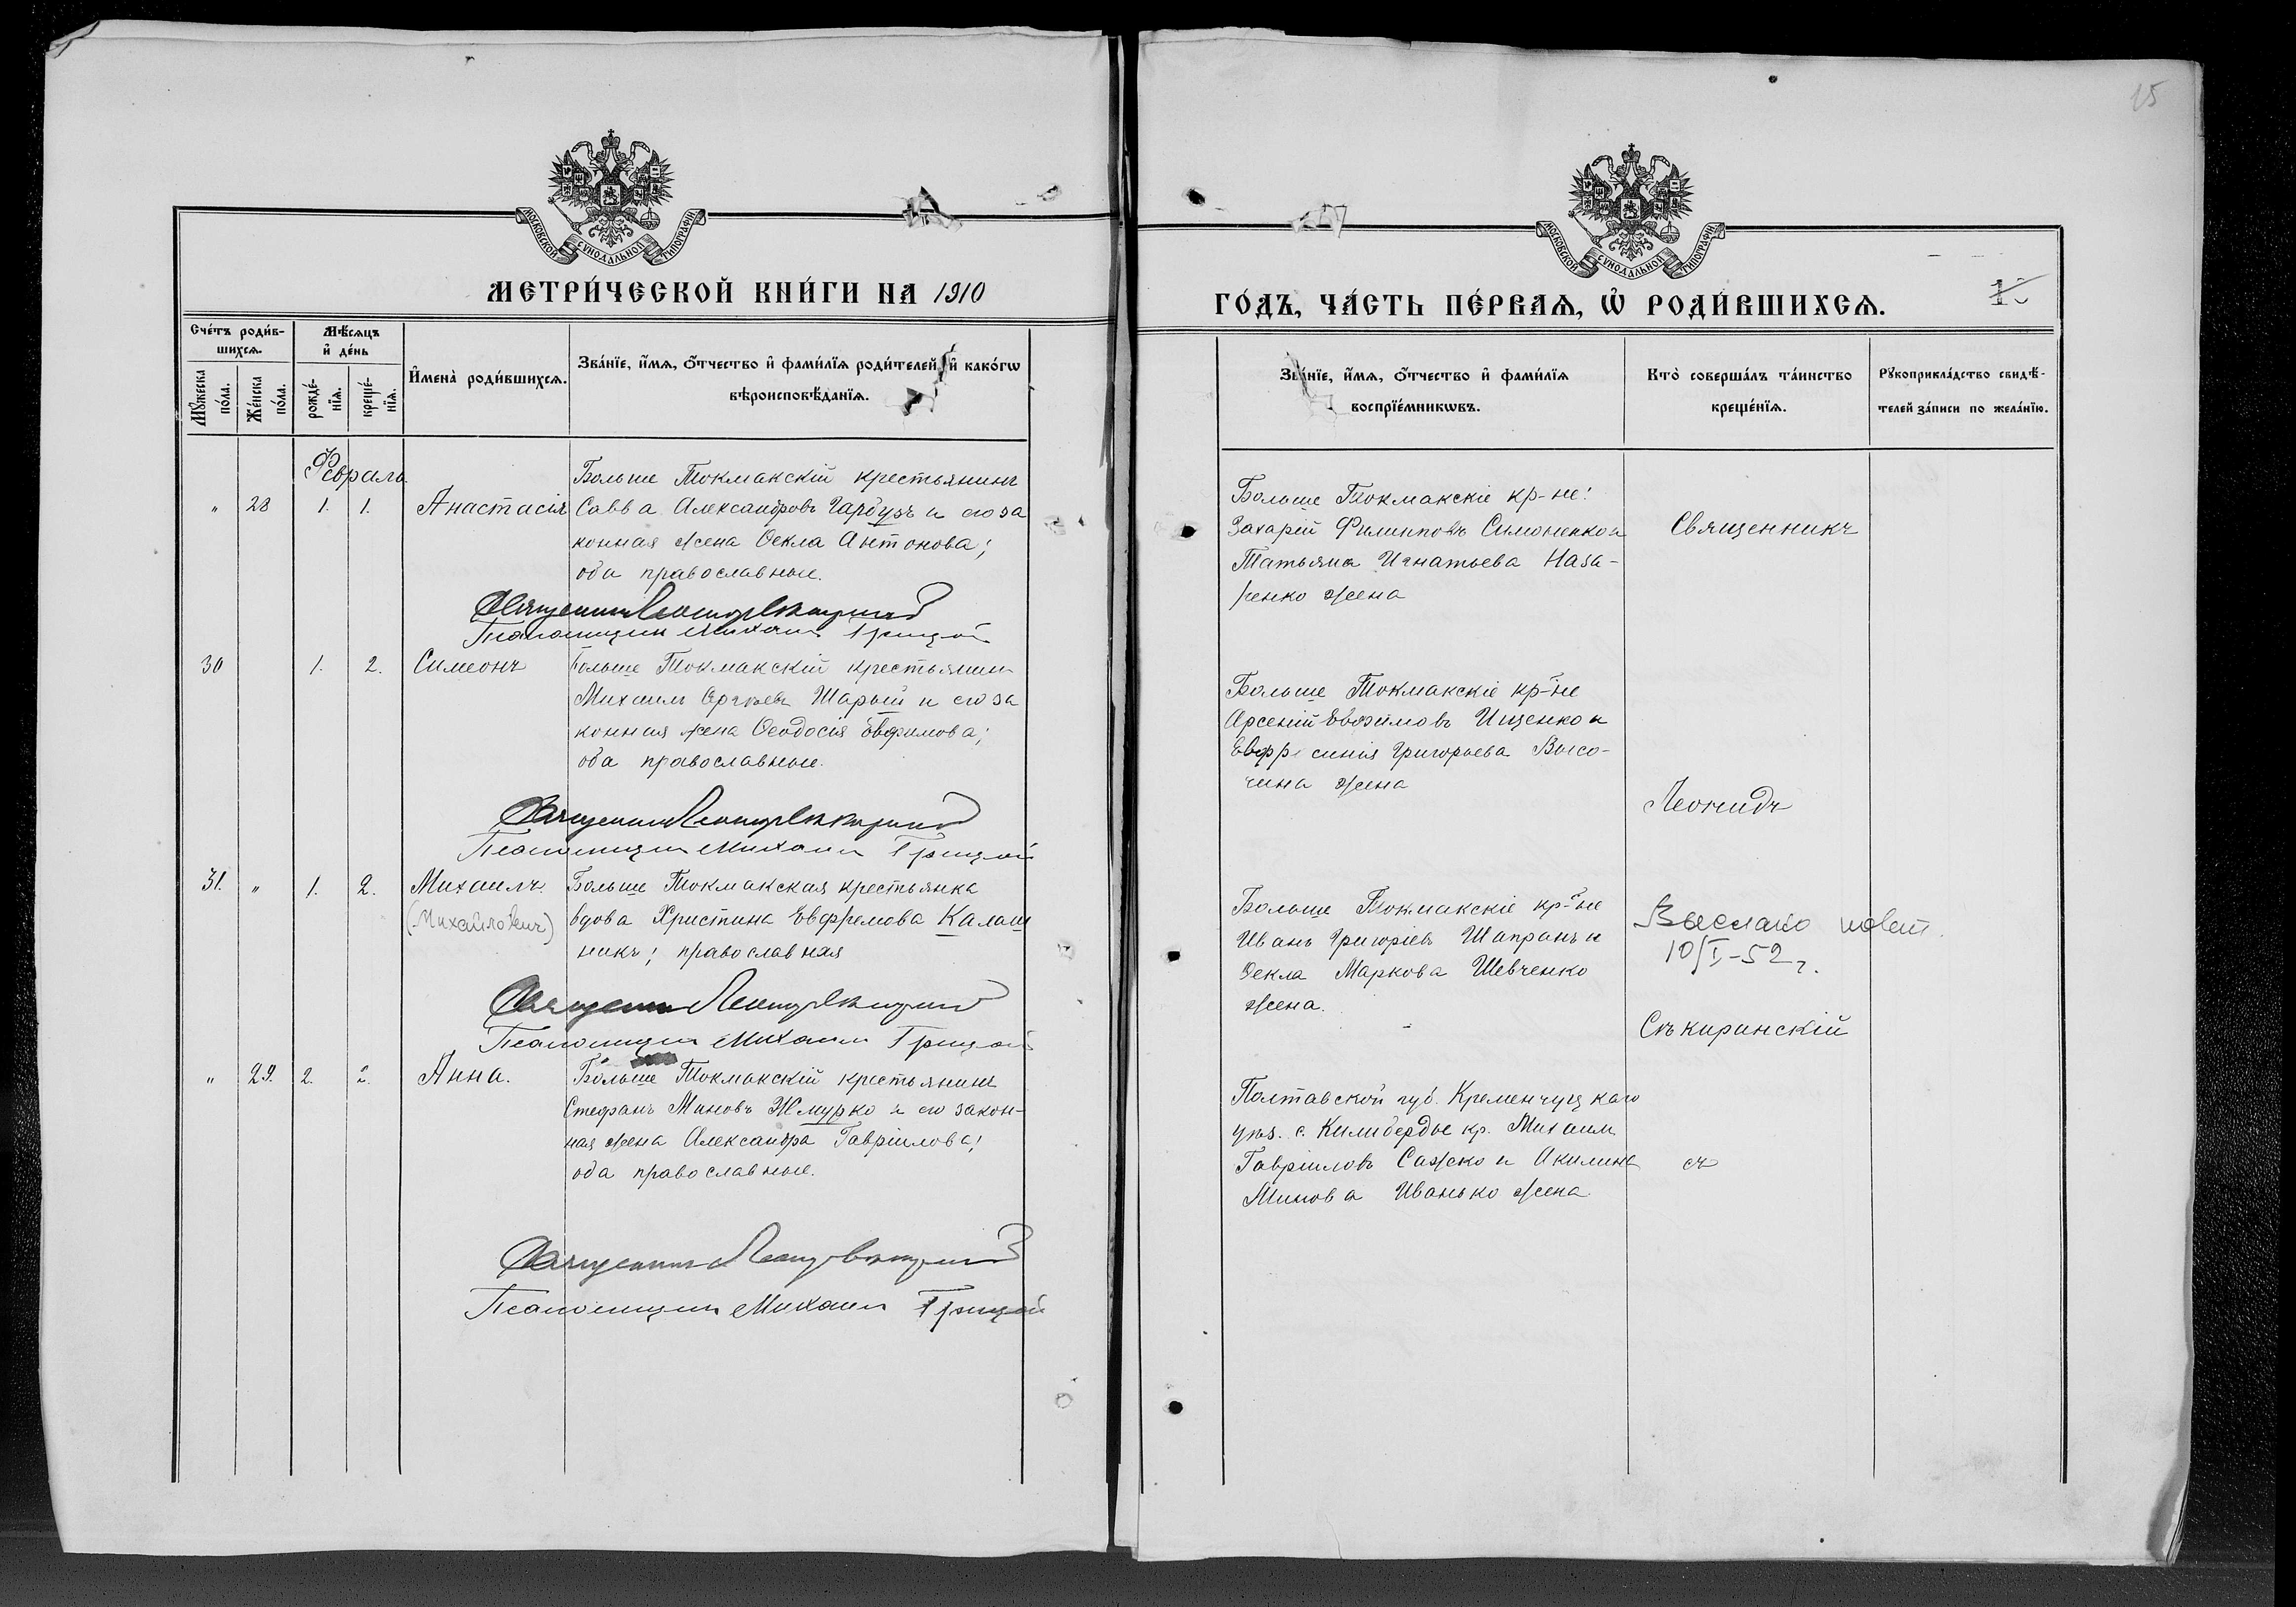 15
МОСКОВСКОЙ СУНОДАЛЬНОЙ ТИПОГРАФІИ
МЕТРИ́ЧЕСКОЙ КНИ́ГИ НА 1910
Счéтъ роди́в-
шихсѧ.
Мꙋ́жеска
по́ла.
Же́нска
по́ла.
Мѣ́сѧцъ
и҆ де́нь
рожде́-
нїѧ.
креще́-
нїѧ.
И҆мена̀ роди́вшихсѧ.
Зва́нїе, и҆́мѧ, ѻ҆́тчество и҆ фами́лїѧ роди́телей, и҆ како́гѡ
вѣроисповѣ́данїѧ.
Февраль.
" 28 1. 1. Анастасія
Больше Токмакскій крестьянинъ
Савва Александровъ Гарбузъ и его за
конная жена Ѳекла Антонова;
оба православные.
Священникъ
Псаломщикъ Михаилъ Грицай
30 1. 2. Симеонъ
Больше Токмакскій крестьянинъ
Михаилъ Сергѣевъ Шарый и его за
конная жена Ѳеодосія Евфимова;
оба православные.
Священникъ
Псаломщикъ Михаилъ Грицай
31. " 1. 2. Михаилъ.
(Михайлович)
Больше Токмакская крестьянка
вдова Христина Евфремова Калаш
никъ; православная
Священникъ
Псаломщикъ Михаилъ Грицай
" 29. 2. 2. Анна.
Больше Токмакскій крестьянинъ
Стефанъ Миновъ Жмурко и его закон-
ная жена Александра Гавріилова;
оба православные.
Священникъ
Псаломщикъ Михаилъ Грицай
МОСКОВСКОЙ СУНОДАЛЬНОЙ ТИПОГРАФІИ
ГО́ДЪ, ЧА́СТЬ ПЕ́РВАѦ, Ѽ РОДИ́ВШИХСѦ.
Зва́нїе, и҆́мѧ, ѻ҆́тчество и҆ фами́лїѧ
воспрїе́мникѡвъ.
Кто̀ соверша́лъ та́инство
креще́нїѧ.
Рꙋкоприкла́дство свидѣ́-
телей за́писи по жела́нїю.
Больше Токмакскіе кр-не:
Захарій Филипповъ Симоненко и
Татьяна Игнатьева Наза-
ренко жена
Священникъ
Больше Токмакскіе кр-не
Арсеній Евфимовъ Ищенко и
Евфросинія Григорьева Высо-
чина жена
Леонидъ
Больше Токмакскіе кр-не
Иванъ Григоріевъ Шапранъ и
Ѳекла Маркова Шевченко
жена.
Выслано повт.
10/I-52 г.
Сѣкиринскій
Полтавской губ. Кременчугскаго
уѣз. с. Килибердье кр. Михаилъ
Гавріиловъ Сажско и Акилина
Минова Иванько жена